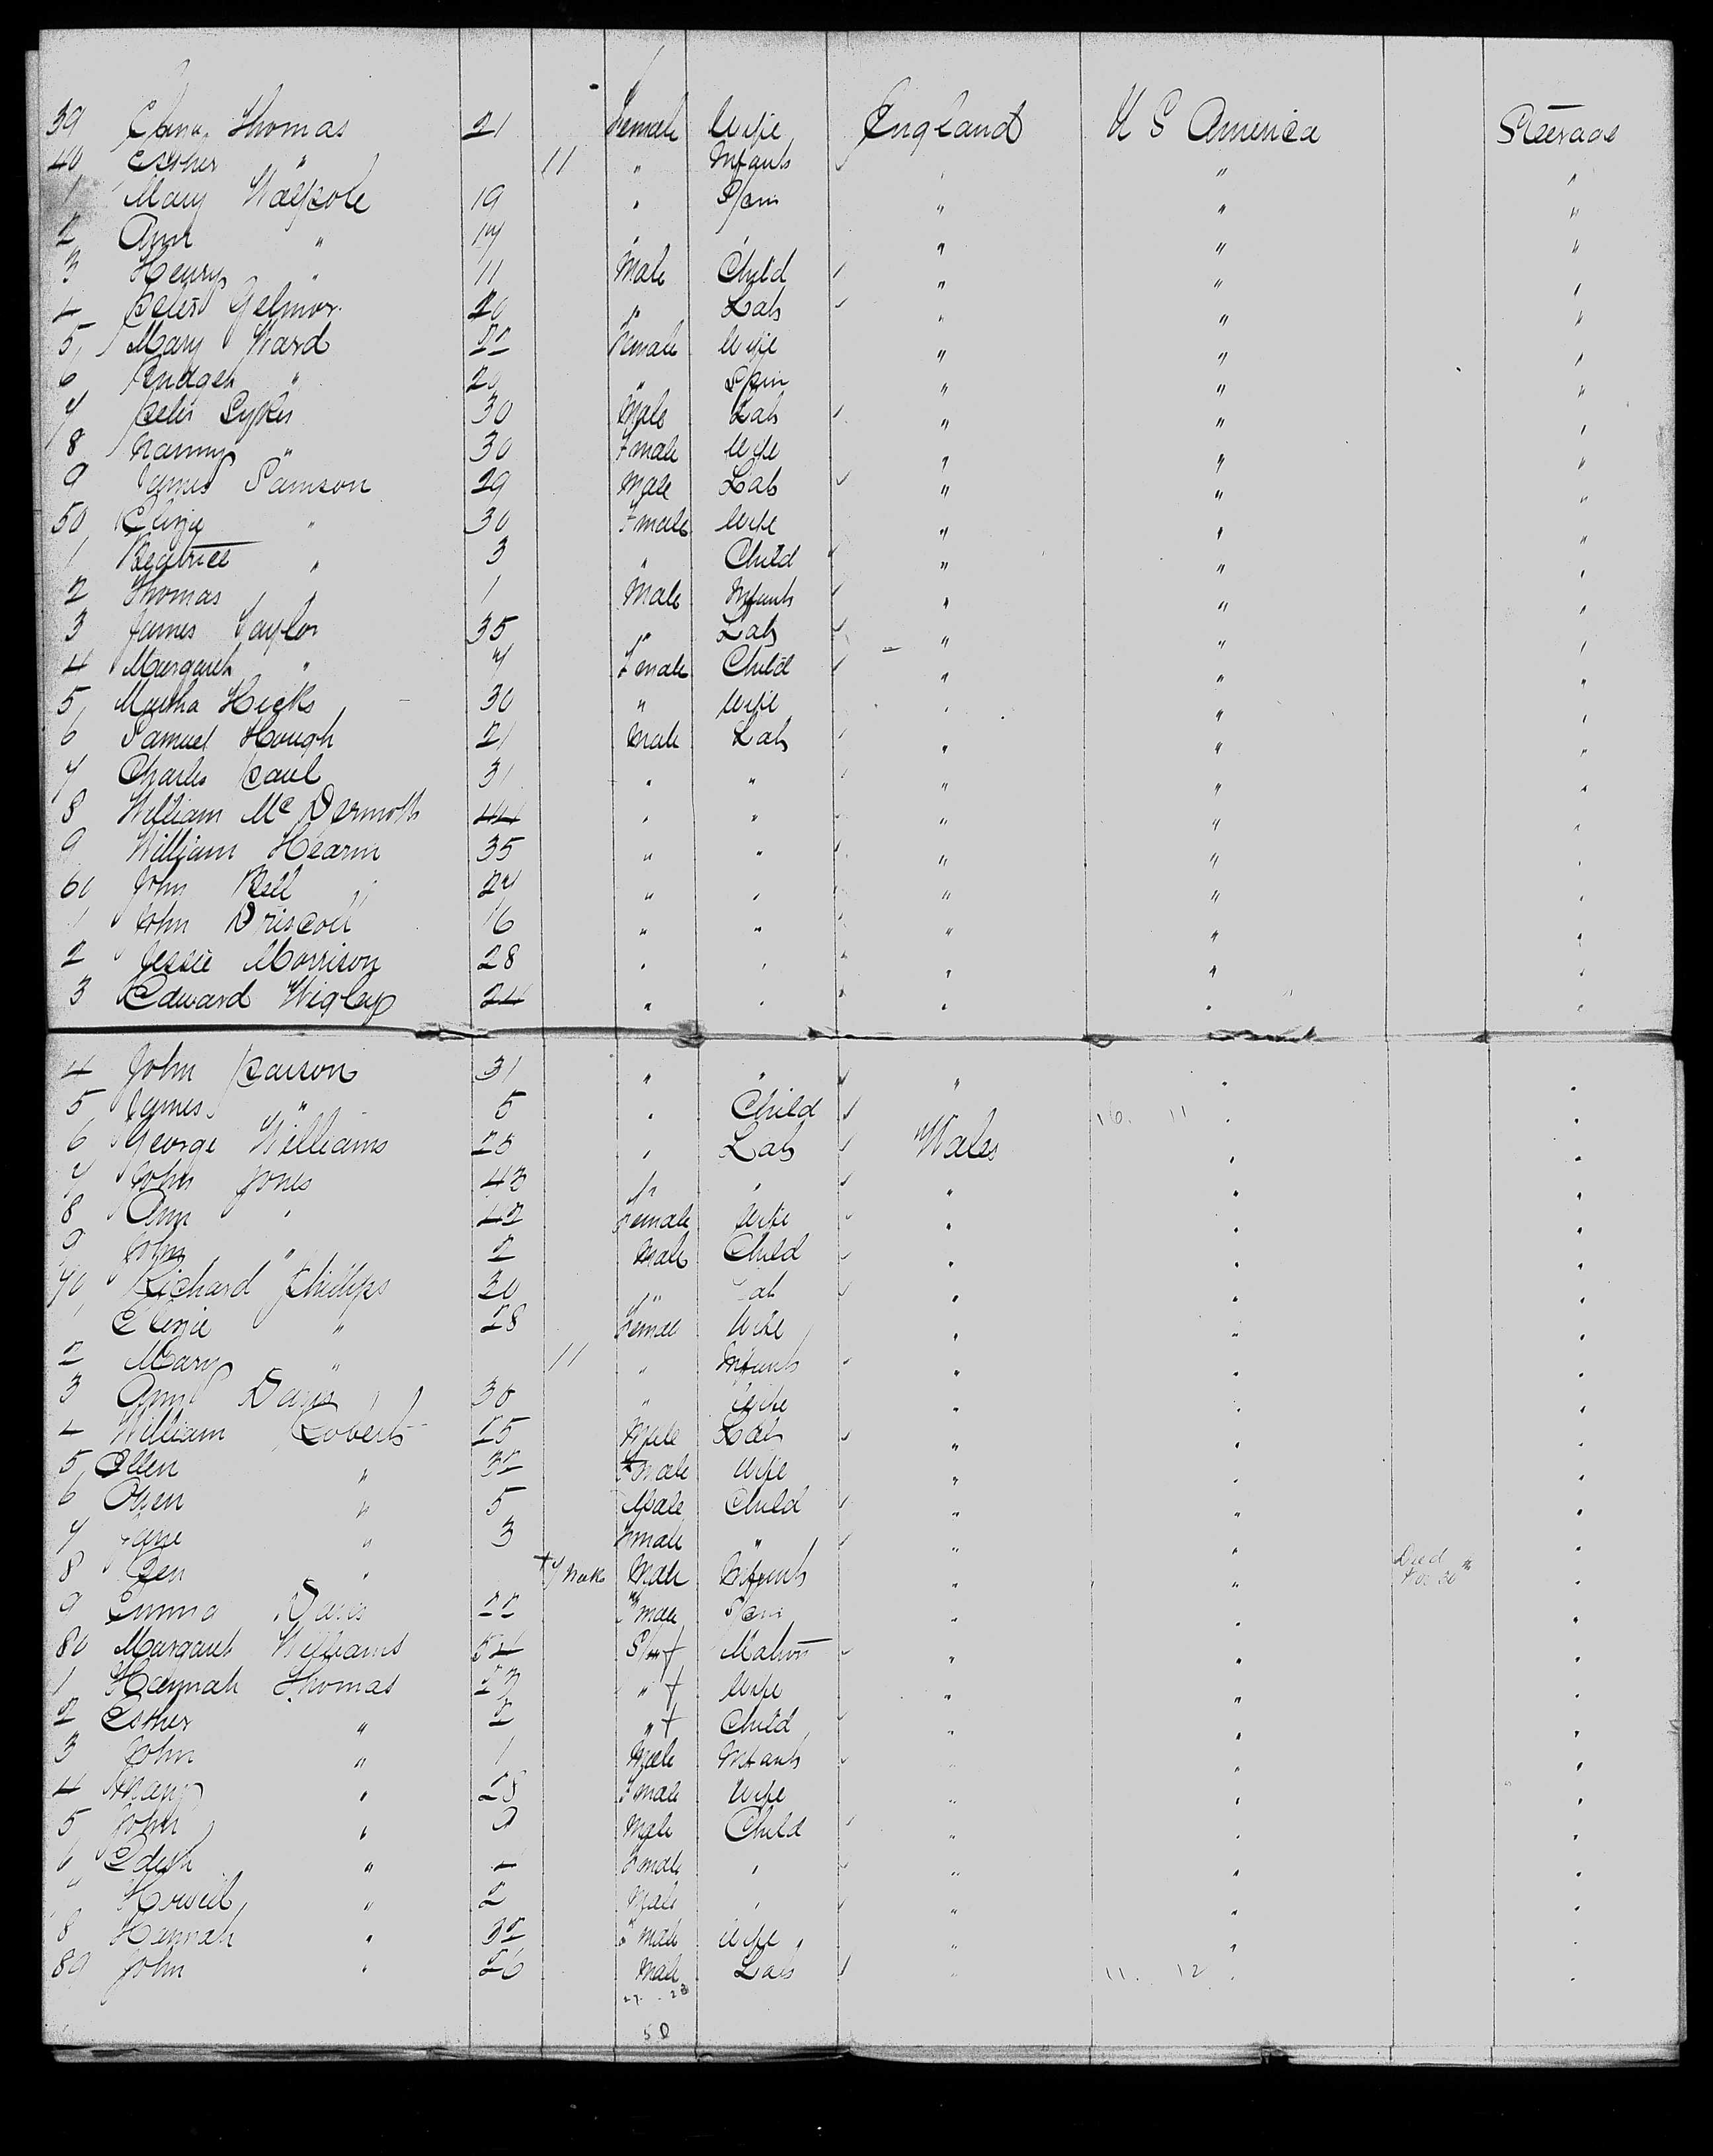 39 Thomas 21 Female Wife England U S America Steerage
40 Esther " 11 " Infant " "
1 Mary Walpole 19 " Spin " " "
2 Ann " 17 " " " " "
3 Henry " 11 Male Child " " "
4 Peter Gelmor 20 " Lab " " "
5 Mary Ward 22 Female Wife " " "
6 Bridget " 20 " Spin " " "
7 Peter Sykes 30 Male Lab " " "
8 Nanny " 30 Female Wife " " "
9 James Samson 29 Male Lab " " "
50 Eliza " 30 Female Wife " " "
1 Beatrice " 3 " Child " " "
2 Thomas " 1 Male Infant " " "
3 James Taylor 35 " Lab " " "
4 Margaret " 7 Female Child " " "
5 Martha Hicks 30 " Wife " " "
6 Samuel Hough 21 Male Lab " " "
7 Charles Paul 31 " " " " "
8 William Mc Dermott 44 " " " " "
9 William Hearn 35 " " " " "
60 John Bell 27 " " " " "
1 John Driscoll 16 " " " " "
2 Jessie Morrison 28 " " " " "
3 Edward Wigley 24 " " " " "
4 John Parson 31 " " " " "
5 James " 5 " Child 16. 11 " "
6 George Williams 25 " Lab Wales " "
7 John Jones 43 " " " " "
8 Ann " 42 Female Wife " " "
9 John " 2 Male Child " " "
70 Richard Phillips 30 " Lab " " "
1 Eliza " 28 Female Wife " " "
2 Mary " 11 " Infant " " "
3 Ann Davis 30 " Wife " " "
4 William Roberts 25 Male Lab " " "
5 Ellen " 32 Female Wife " " "
6 Owen " 5 Male Child " " "
7 Jane " 3 Female " " " "
8 " Male Infant " " Died "
9 Emma Davis 22 Female Spin " " "
80 Margaret Williams 54 Matron " " "
1 Hannah Thomas 23 " Wife " " "
2 Esther " 2 " Child " " "
3 John " 1 Male Infant " " "
4 Mary " 28 Female Wife " " "
5 John " 9 Male Child " " "
6 Edith " 4 Female " " " "
7 Howell " 2 Male " " " "
8 Hannah " 32 Female Wife " " "
89 John " 26 Male Lab " 11. 12 " "
27. 23
50